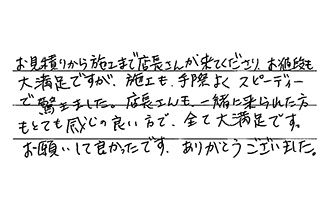 お見積りから施工まで店長さんが来てくださり、お値段も
大満足ですが、施工も、手際よくスピーディー
で驚きました。店長さんも、一緒に来られた方
もとても感じの良い方で、全て大満足です。
お願いして良かったです。ありがとうございました。